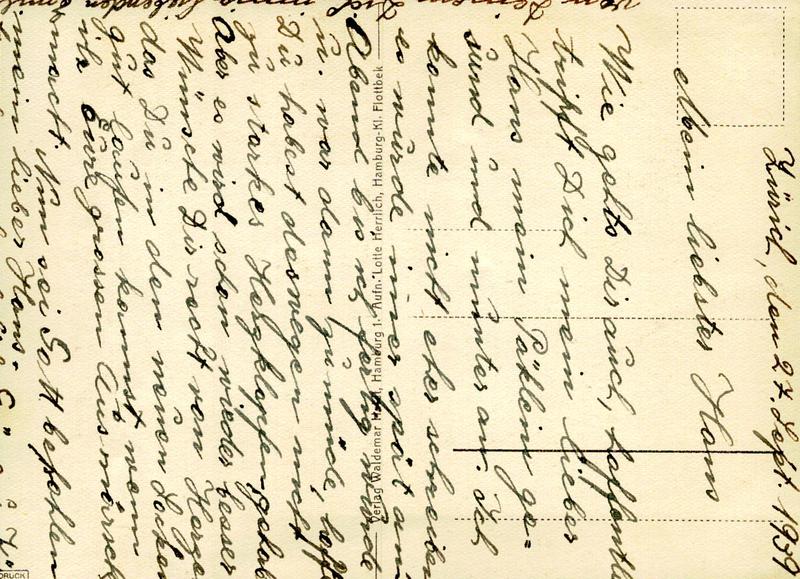 Zürich, den 27. Sept. 1939
Mein liebster Hans
Wie gehts Dir auch, hoffentl
trifft Dich mein lieber
Hans mein Päklein ge=
sund und munter an. Ich
konnte nicht eher schreiben
es wurde immer spät am
Abend bis ich fertig wurde
u. war dann zu müde, hoffe
Du habest deswegen nicht
zu starkes Herzklopfen gehabt
Aber es wird schon wieder besser
Wünsche Dir recht von Herzen
das Du in den neuen Socken
gut laufen kannst wenn
ihr Eure grossen Ausmärsche
macht. Nun sei Gott befohlen
mein lieber Hans.
von Deinem Dich liebenden
Verlag Waldemar Hamburg 1 - Aufn.: Lotte Herrlich, Hamburg-Kl. Flottbek
DRUCK